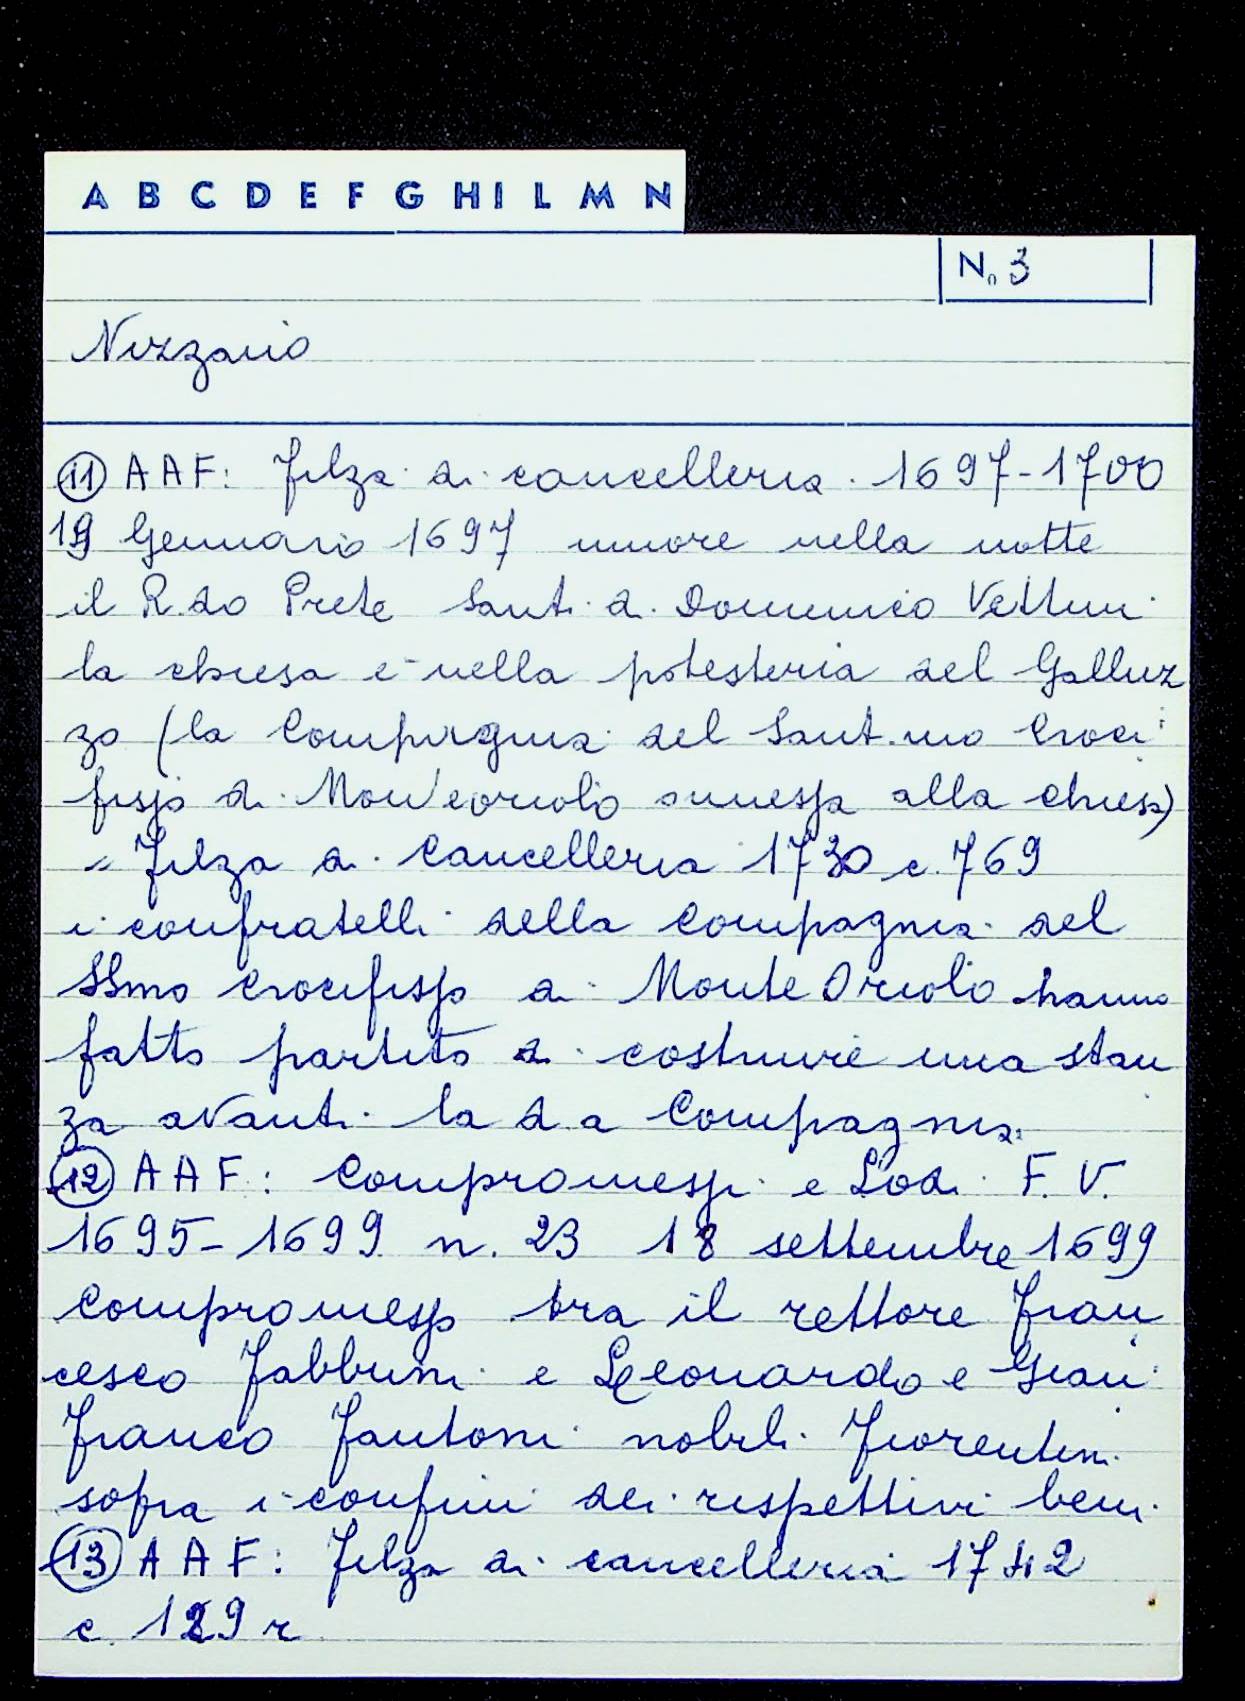 A B C D E F G H I L M N
N. 3
Nizzano
11 A A F: Filza di cancelleria 1697-1700
19 Gennaio 1697 muore nella notte
il R.do Prete Santi di Domenico Vettini
la chiesa è nella potesteria del Galluz
zo (la Compagnia del Sant.mo Croci
fisso di Monteoriolo annessa alla chiesa)
" Filza di Cancelleria 1730 c. 769
i confratelli della Compagnia del
SSmo Crocifisso di Monte Oriolo hanno
fatto partito di costruire una stan
za avanti la d a Compagnia.
12 A A F: Compromessi e Lodi F. V.
1695-1699 n. 23 18 settembre 1699
Compromesso tra il rettore Fran
cesco Fabbrini e Leonardo e Gian
Franco Fantoni nobili Fiorentini
sopra i confini dei rispettivi beni.
13 A A F: Filza di cancelleria 1742
c. 129 r